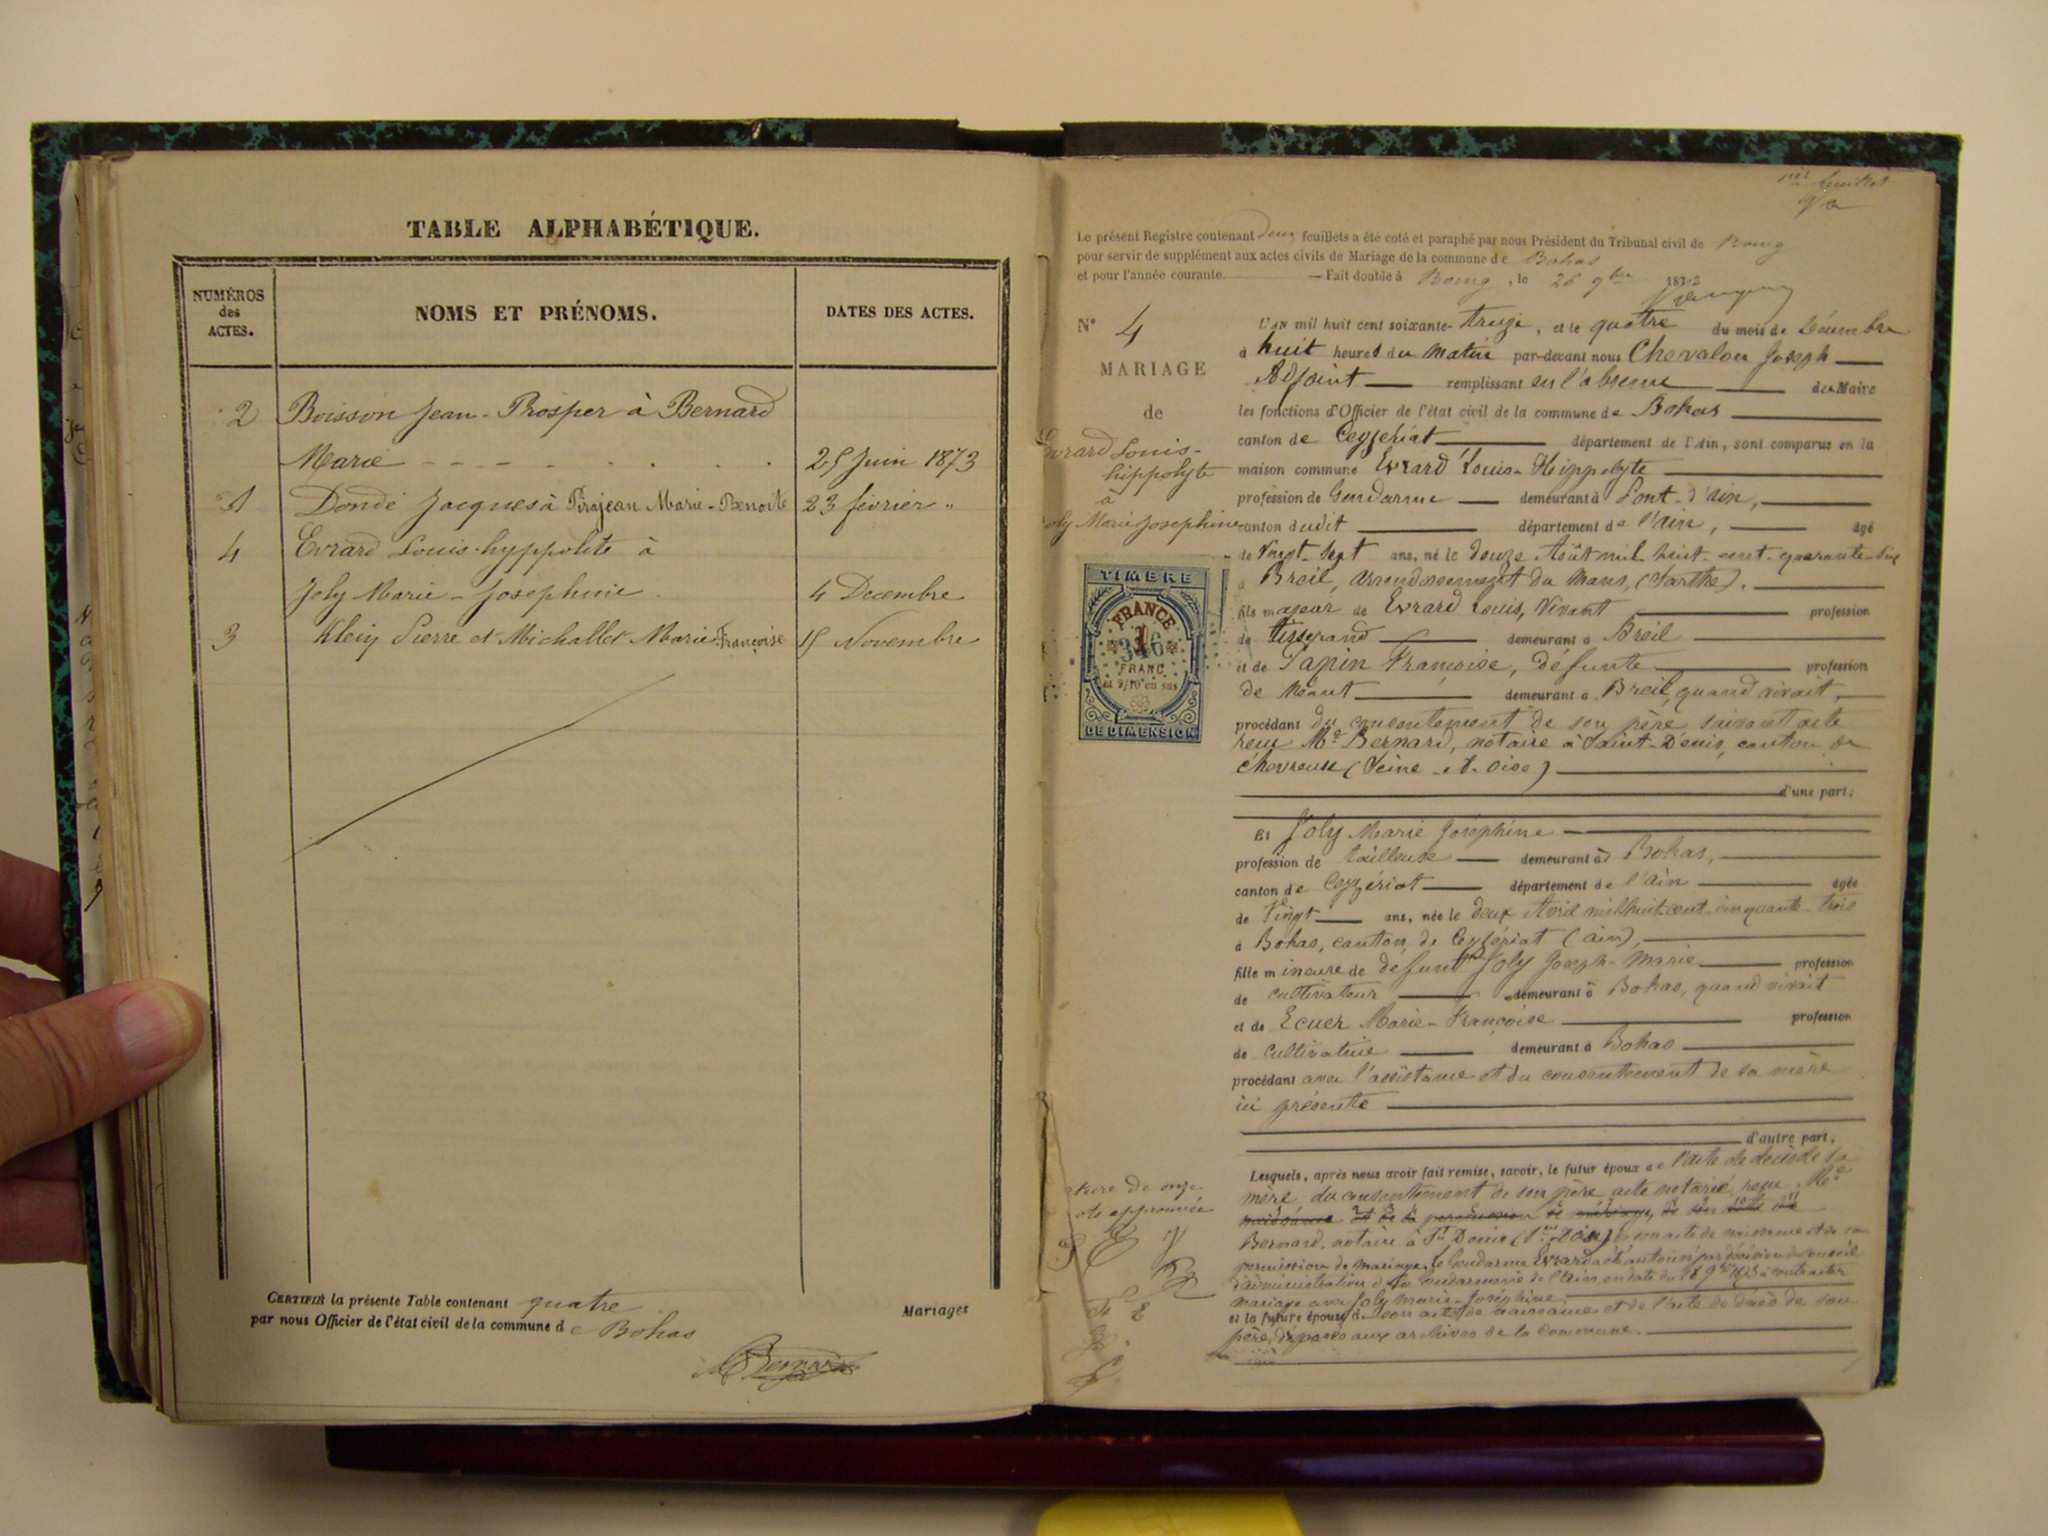 TABLE ALPHABÉTIQUE.
NUMÉROS des ACTES.
NOMS ET PRÉNOMS.
DATES DES ACTES.
2 Boisson Jean-Prosper à Bernard
Marie 25 Juin 1873
1 Dondé Jacques à Pirajean Marie-Benoite 23 février "
4 Evrard Louis-hyppolite à
Joly Marie-Josephine 4 Decembre
3 Klein Pierre et Michallet Marie Françoise 15 Novembre
CERTIFIÉ la présente Table contenant quatre Mariages
par nous Officier de l'état civil de la commune de Bohas
Bernard
1er feuillet
Le présent Registre contenant deux feuillets a été coté et paraphé par nous Président du Tribunal civil de Bourg
pour servir de supplément aux actes civils de Mariage de la commune de Bohas
et pour l'année courante. — Fait double à Bourg, le 26 9bre 1873
N° 4
MARIAGE
de
Evrard Louis-
hippolyte
à
Joly Marie Josephine
TIMBRE
FRANCE
1
346
FRANC
et 2/10 en sus
DE DIMENSION
L'AN mil huit cent soixante-treize, et le quatre du mois de Décembre
à huit heures du matin par-devant nous Chevalon Joseph
Adjoint remplissant en l'absence du Maire
les fonctions d'Officier de l'état civil de la commune de Bohas
canton de Ceyzériat département de l'Ain, sont comparus en la
maison commune Evrard Louis-Hippolyte
profession de Gendarme demeurant à Pont-d'ain,
canton dudit département de l'ain, âgé
de Vingt-sept ans, né le douze Août mil huit-cent-quarante-six
à Breil, arrondissement du Mans, (Sarthe).
fils majeur de Evrard Louis, Vivant profession
de tisserand demeurant à Breil
et de Papin Françoise, défunte profession
de néant demeurant à Breil, quand vivait,
procédant du consentement de son père suivant acte
reçu Me Bernard, notaire à Saint-Denis, canton de
chevreuse (Seine-et-oise)
d'une part;
Et Joly Marie Joséphine
profession de tailleuse demeurant à Bohas,
canton de Ceyzériat département de l'ain âgée
de Vingt ans, née le deux Avril mil huit-cent-cinquante-trois
à Bohas, canton de Ceyzériat (ain),
fille mineure de défunt Joly Joseph-Marie profession
de cultivateur demeurant à Bohas, quand vivait
et de Ecuer Marie-Françoise profession
de cultivatrice demeurant à Bohas
procédant avec l'assistance et du consentement de sa mère
ici présente
d'autre part;
Lesquels, après nous avoir fait remise, savoir, le futur époux de l'acte de décès de sa
mère du consentement de son père acte notarié reçu Me
Bernard, notaire à St Denis de son acte de naissance et de sa
permission de mariage, le Gendarme Evrard a été autorisé par décision du conseil
d'administration de la Gendarmerie de l'Ain, en date du 18 9bre 1873 à contracter
mariage avec Joly Marie-Joséphine;
et la future épouse de son acte de naissance et de l'acte de décès de son
père, déposés aux archives de la commune.
rature de onze
mots approuvée